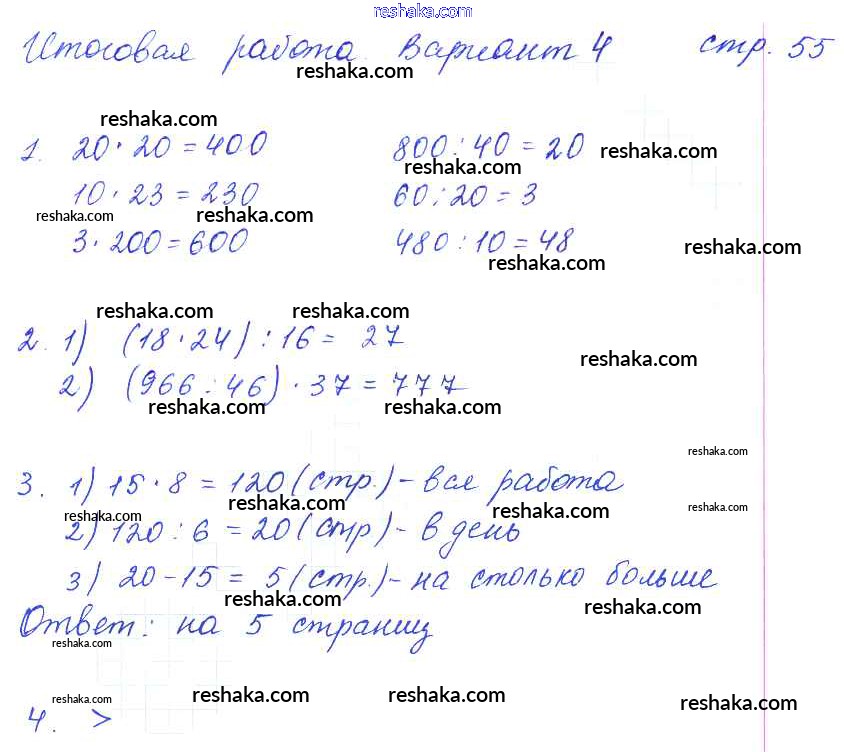 reshaka.com
Итоговая работа. Вариант 4 стр. 55
reshaka.com
reshaka.com
1. 20 · 20 = 400 800 : 40 = 20 reshaka.com
reshaka.com
10 · 23 = 230 60 : 20 = 3
reshaka.com reshaka.com
3 · 200 = 600 480 : 10 = 48 reshaka.com
reshaka.com
reshaka.com reshaka.com
2. 1) (18 · 24) : 16 = 27
reshaka.com
2) (966 : 46) · 37 = 777
reshaka.com reshaka.com
reshaka.com
3. 1) 15 · 8 = 120 (стр.) - вся работа
reshaka.com reshaka.com reshaka.com
reshaka.com
2) 120 : 6 = 20 (стр) - в день
3) 20 - 15 = 5 (стр.) - на столько больше
reshaka.com reshaka.com
Ответ: на 5 страниц
reshaka.com
reshaka.com reshaka.com reshaka.com reshaka.com
4. >